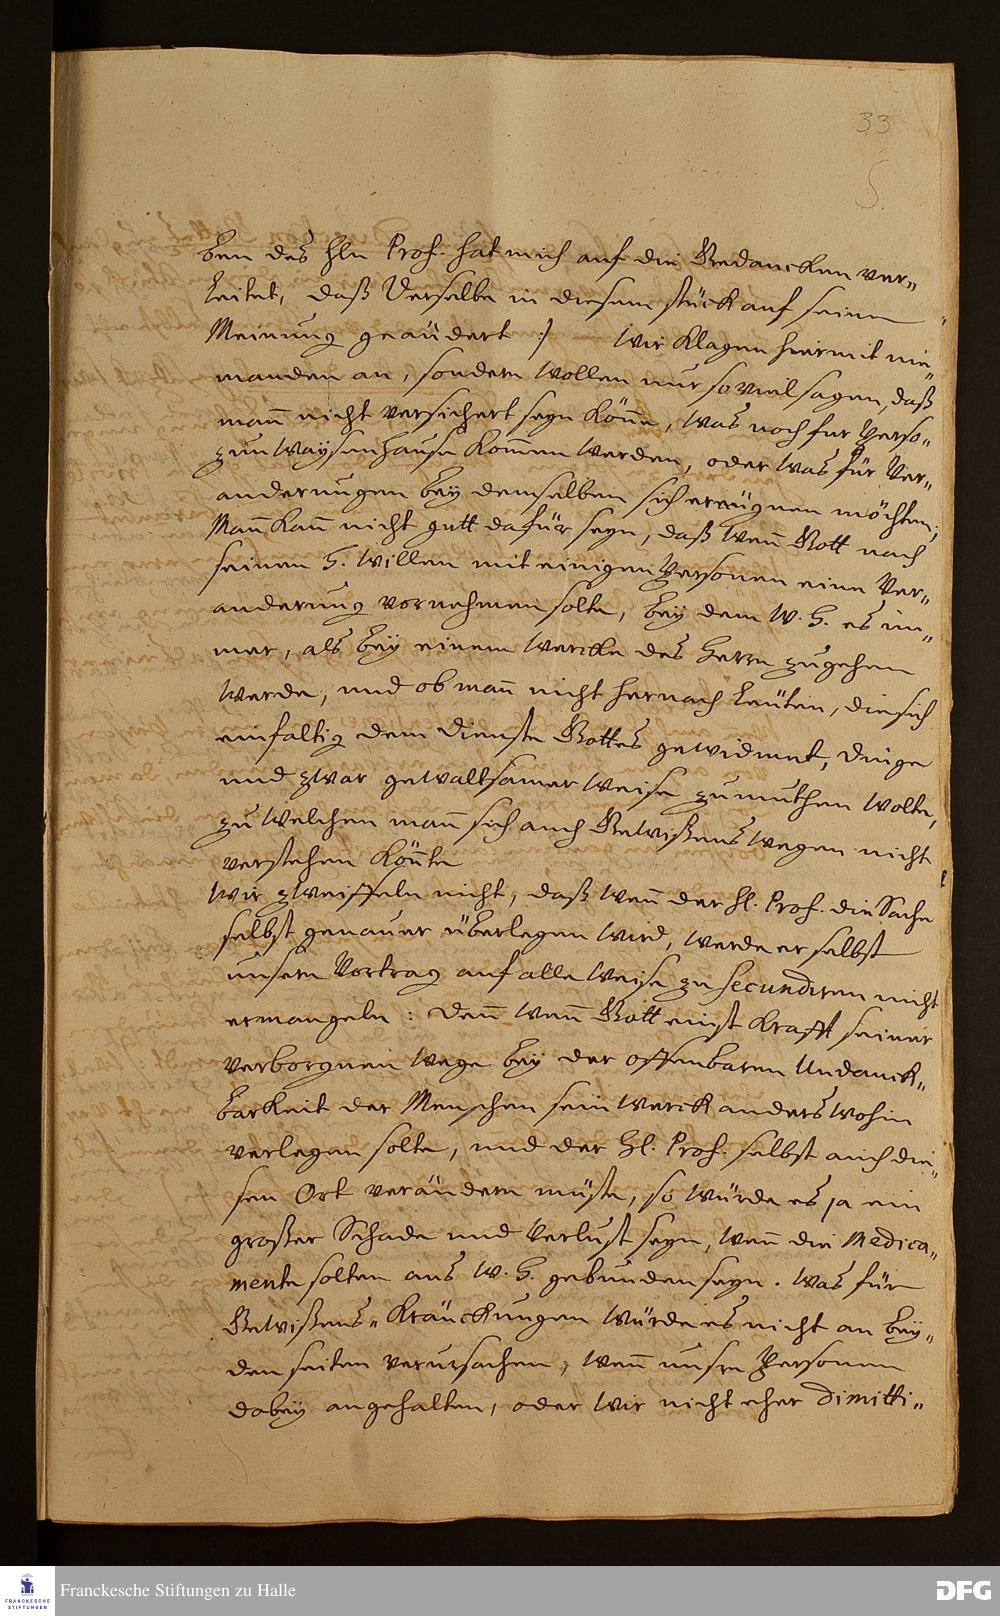 33
5.
ben des Hln Prof. hat mich auf die Gedancken ver„
leitet, daß Derselbe in diesem stück auf seine
Meinung geaüdert :/ Wir klagen hiermit nie„
manden an, sondern wollen nur so viel sagen, daß
mañ nicht versichert seyn köñe, was noch für Perso„
zum Waysenhause kom̃en werden, oder was für Ver„
anderungen bey demselben sich ereügnen möchten;
Mañ kañ nicht gutt dafür seyn, daß weñ Gott nach
seinem H. Willen mit einigen Personen eine Ver„
anderung vornehmen solte, bey dem W. H. es im„
mer, als bey einem Wercke des Herrn zugehen
werde, und ob mañ nicht hernach Leüten, die sich
einfaltig dem Dienste Gottes gewidmet, dinge
und zwar gewaltsamer Weise zumuthen wolte,
zu welchen mañ sich auch Gewißens wegen nicht
verstehen köñte
Wir zweiffeln nicht, daß weñ der Hl. Prof. die Sache
selbst genauer überlegen wird, werde er selbst
unsern Vortrag auf alle Weise zu secundiren nicht
ermangeln: Deñ weñ Gott einst Krafft seiner
verborgnen Wege bey der offenbaren Undanck„
barkeit der Menschen sein Werck anders wohin
verlegen solte, und der Hl. Prof. selbst auch die„
sen Ort verändern müste, so würde es ja ein
großer Schade und Verlust seyn, weñ die Medica„
mente solten ans W. H. gebunden seyn. Was für
Gewißens„Kräuckungen würde es nicht an bey„
den seiten verursachen, weñ unsre Personen
dabey angehalten, oder wir nicht eher dimitti„
Franckesche Stiftungen zu Halle
FRANCKESCHE
STIFTUNGEN
DFG